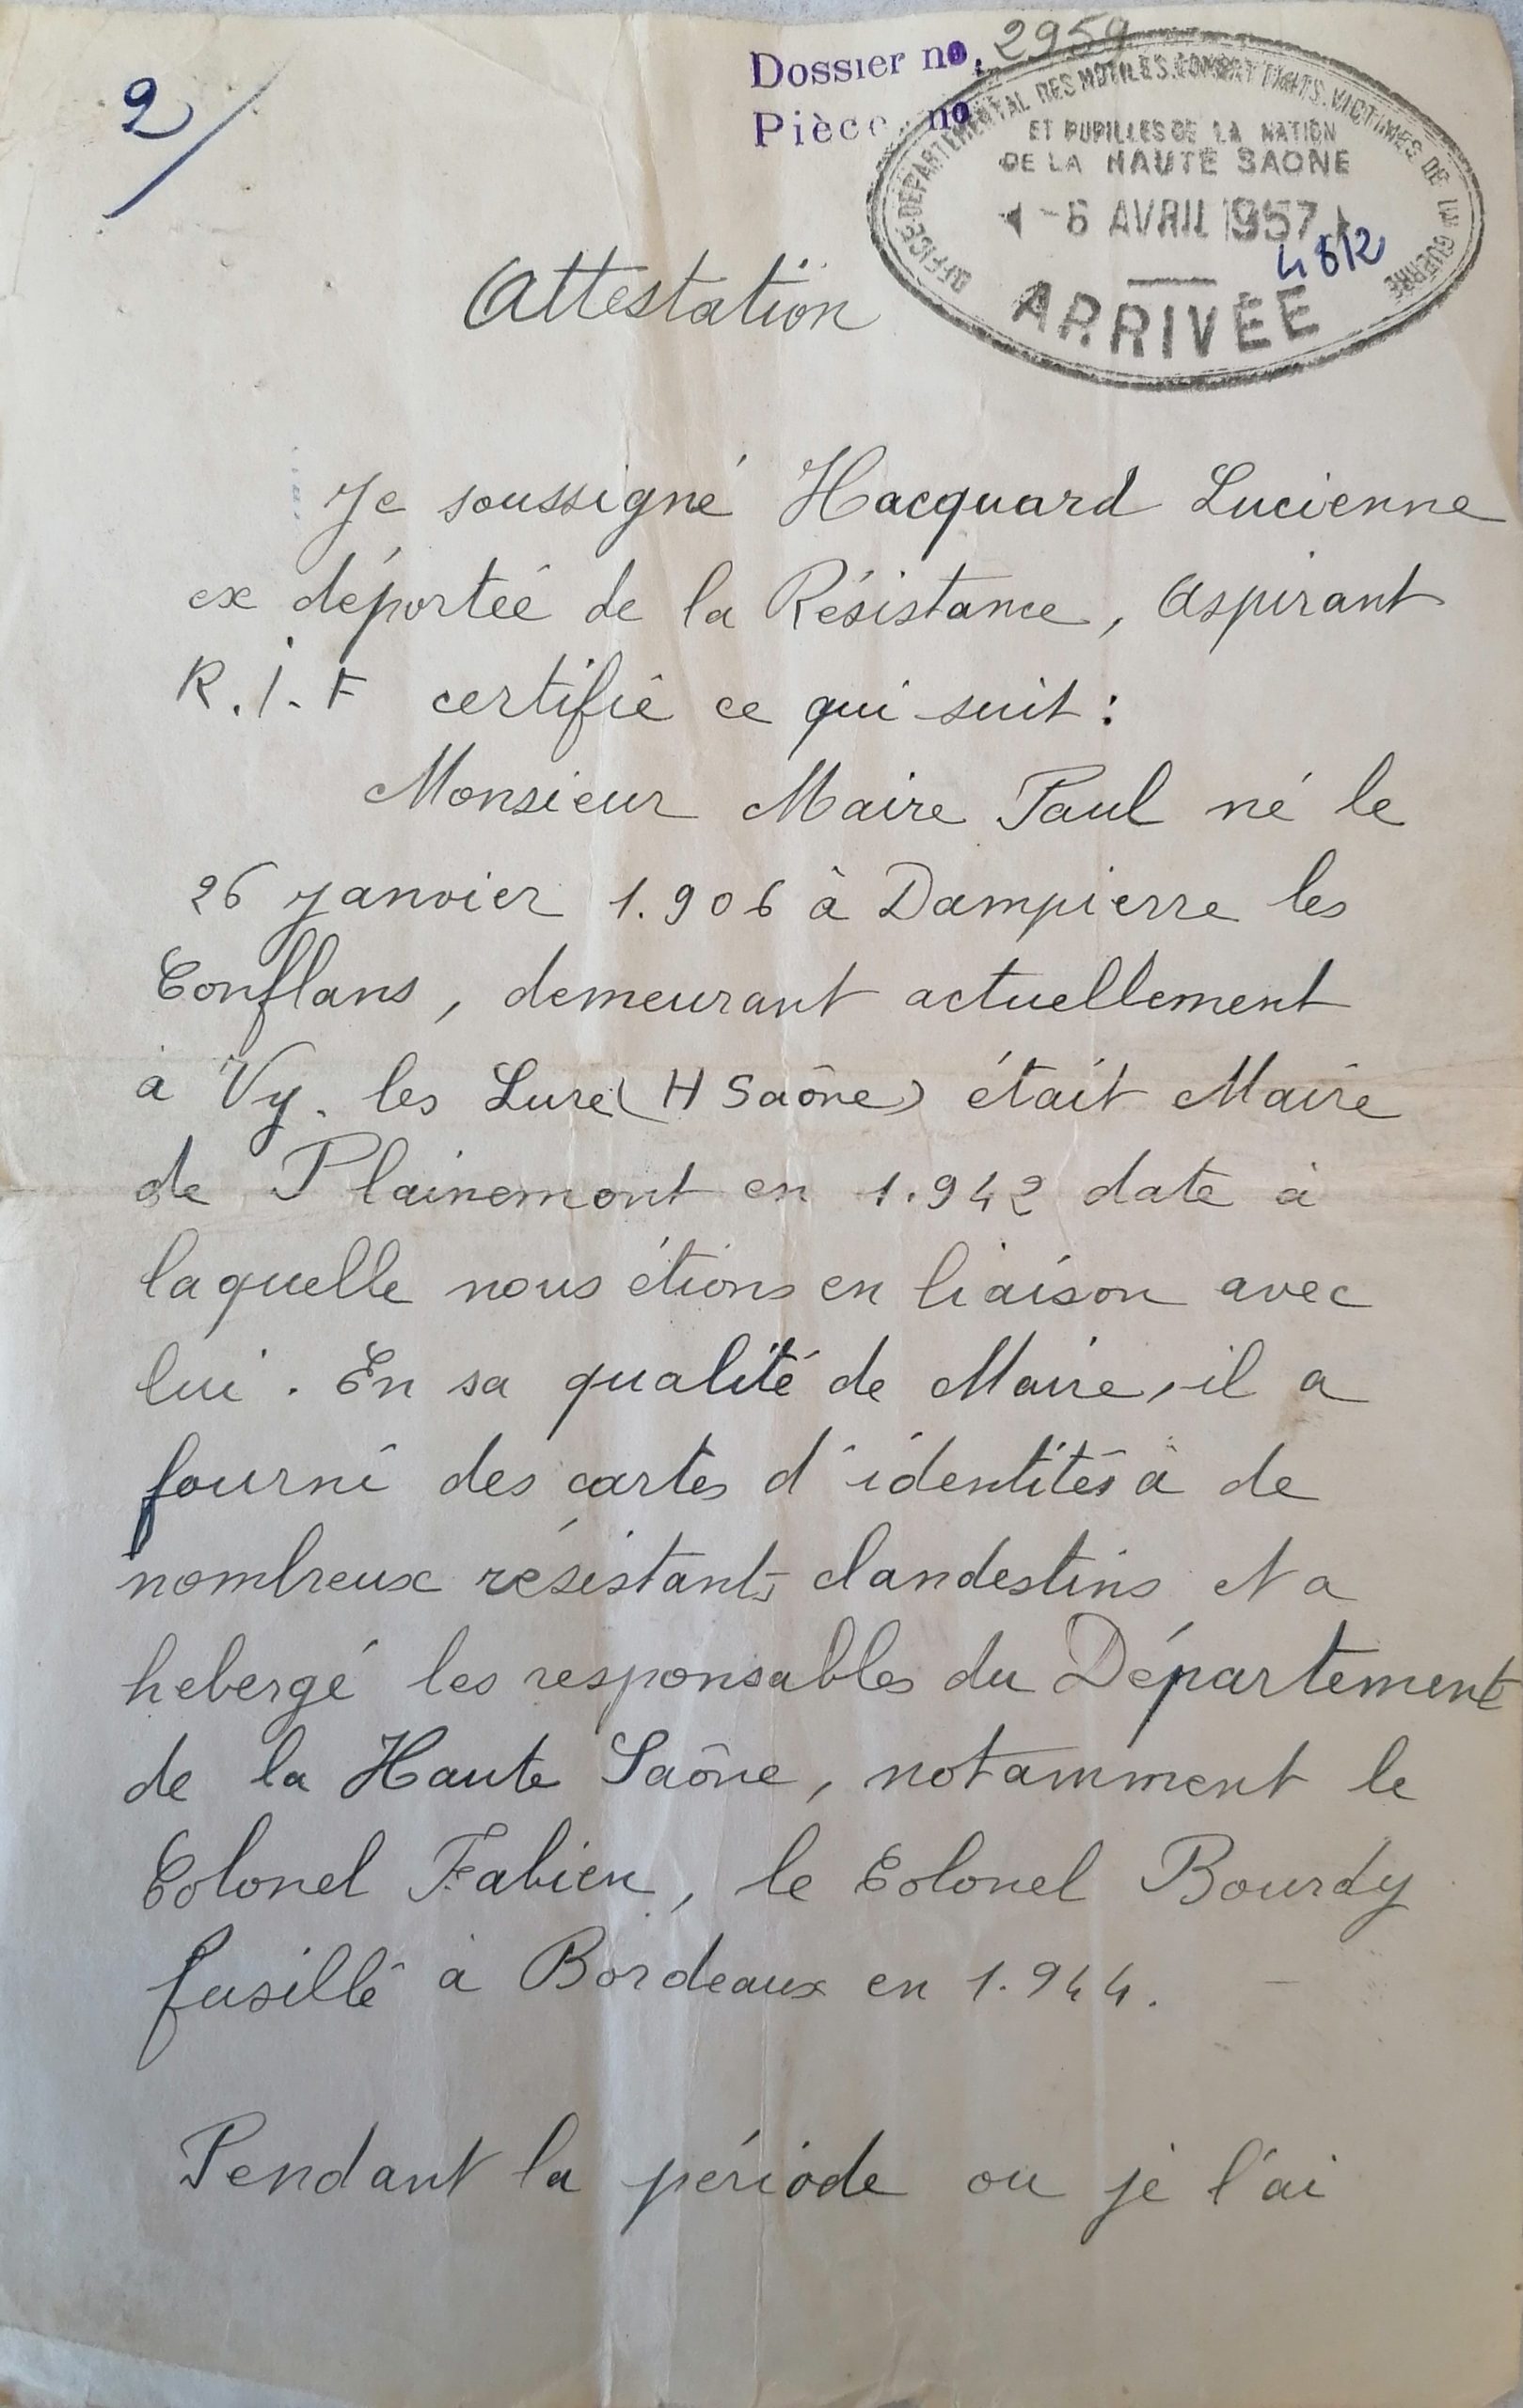 2/
Dossier no. 2959
Pièce no
OFFICE DEPARTEMENTAL DES MUTILES. COMBATTANTS. VICTIMES DE LA GUERRE
ET PUPILLES DE LA NATION
DE LA HAUTE SAONE
-6 AVRIL 1957
4812
ARRIVÉE
Attestation
Je soussigné Hacquard Lucienne
ex déportée de la Résistance, Aspirant
R.I.F certifie ce qui suit :
Monsieur Maire Paul né le
26 janvier 1.906 à Dampierre les
Conflans, demeurant actuellement
à Vy. les Lure (H Saône) était Maire
de Plainemont en 1.942 date à
laquelle nous étions en liaison avec
lui. En sa qualité de Maire, il a
fourni des cartes d'identités à de
nombreux résistants clandestins et a
hebergé les responsables du Département
de la Haute Saône, notamment le
Colonel Fabien, le Colonel Bourdy
fusillé à Bordeaux en 1.944.
Pendant la période ou je l'ai